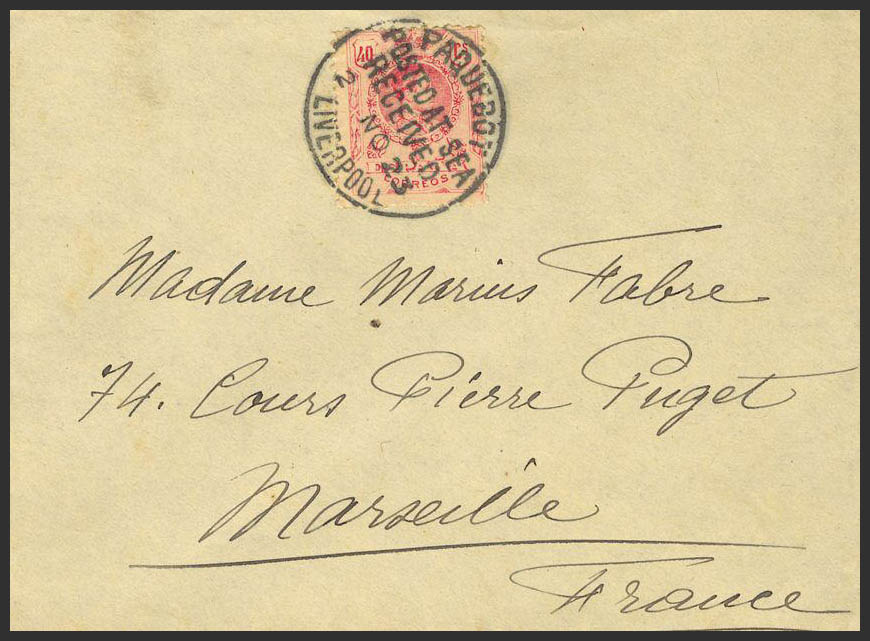 40 CS
PAQUEBOT
POSTED AT SEA
RECEIVED
2 NO 23
LIVERPOOL
CORREOS
Madame Marius Fabre
74. Cours Pierre Puget
Marseille
France